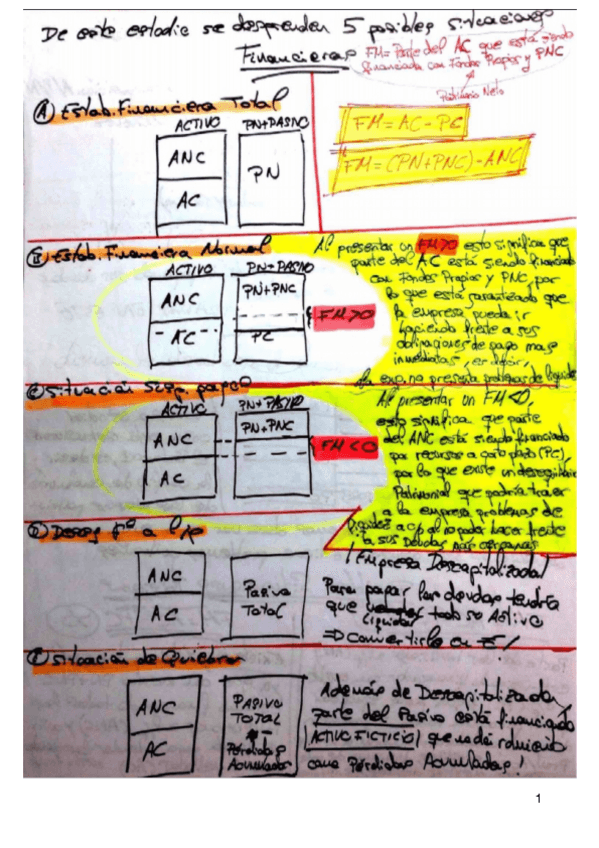 De este estudio se desprenden 5 posibles situaciones
Financieras
FM=Parte del AC que está siendo
financiada con Fondos Propios y PNC
Patrimonio Neto
A) Estab. Financiera Total
ACTIVO
PN+PASIVO
ANC
AC
PN
FM=AC-PC
FM=(PN+PNC)-ANC
B) Estab. Financiera Normal
ACTIVO
PN+PASIVO
ANC
AC
PN+PNC
PC
FM>0
Al presentar un FM>0 esto significa que
parte del AC está siendo financiado
con Fondos Propios y PNC, por
lo que está garantizado que
la empresa puede ir
haciendo frente a sus
obligaciones de pago mas
inmediatas, es decir,
la emp. no presenta problemas de liquidez
C) Situación Susp. pagos
ACTIVO
PN+PASIVO
ANC
AC
PN+PNC
FM<0
Al presentar un FM<0,
esto significa que parte
del ANC está siendo financiado
por recursos a corto plazo (PC),
por lo que existe un desequilibrio
Patrimonial que podría traer
a la empresa problemas de
liquidez a c/p al no poder hacer frente
a sus deudas más cercanas
D) Deseq fº a l/p
ANC
AC
Pasivo
Total
¡Empresa Descapitalizada!
Para pagar las deudas tendría
que liquidar todo su Activo
⇒ convertirlo en €!
E) Situación de Quiebra
ANC
AC
PASIVO
TOTAL
Pérdidas
Acumuladas
Además de Descapitalizada,
parte del Pasivo está financiando
ACTIVO FICTICIO
como Pérdidas Acumuladas!
1